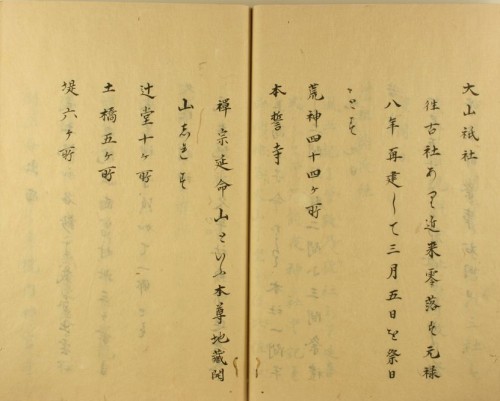 大山祇社
往古社あり近来零落す元禄
八年再建して三月五日を祭日
とす
荒神四十四ヶ所
本誓寺
禅宗延命山といふ本尊地蔵開
山しれす
辻堂十ヶ所
土橋五ヶ所
堤六ヶ所